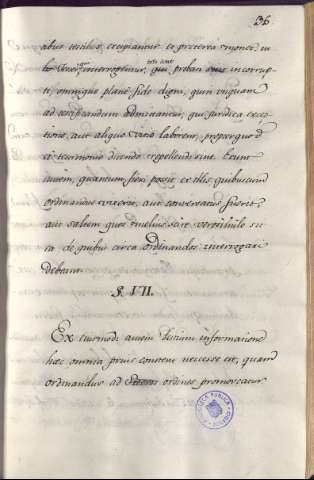 36.
abus testibus, excipiantur. et præterea monet, ut
testes sint
interrogentur, qui probati sint incorrup-
ti, omnique planè fide digni, quin unquam
ad testificandum admittantur, qui juridica excep-
tione, aut aliquo vitio laborent, propter quod
à testimonio dicendo repellendi sint. Erunt
autem, quantum fieri possit ex illis quibuscum
ordinandus vixerit, aut conversatus fuerit;
aut saltem quos melius scire verisimile su
ea de quibus circa ordinandos interrogari
debeant.
§. VII.
Ex ejusmodi autem testium informatione
hæc omnia prius constent necesse est, quam
ordinandus ad ordines promoveatur.
BIBLIOTECA PUBLICA
TOLEDO